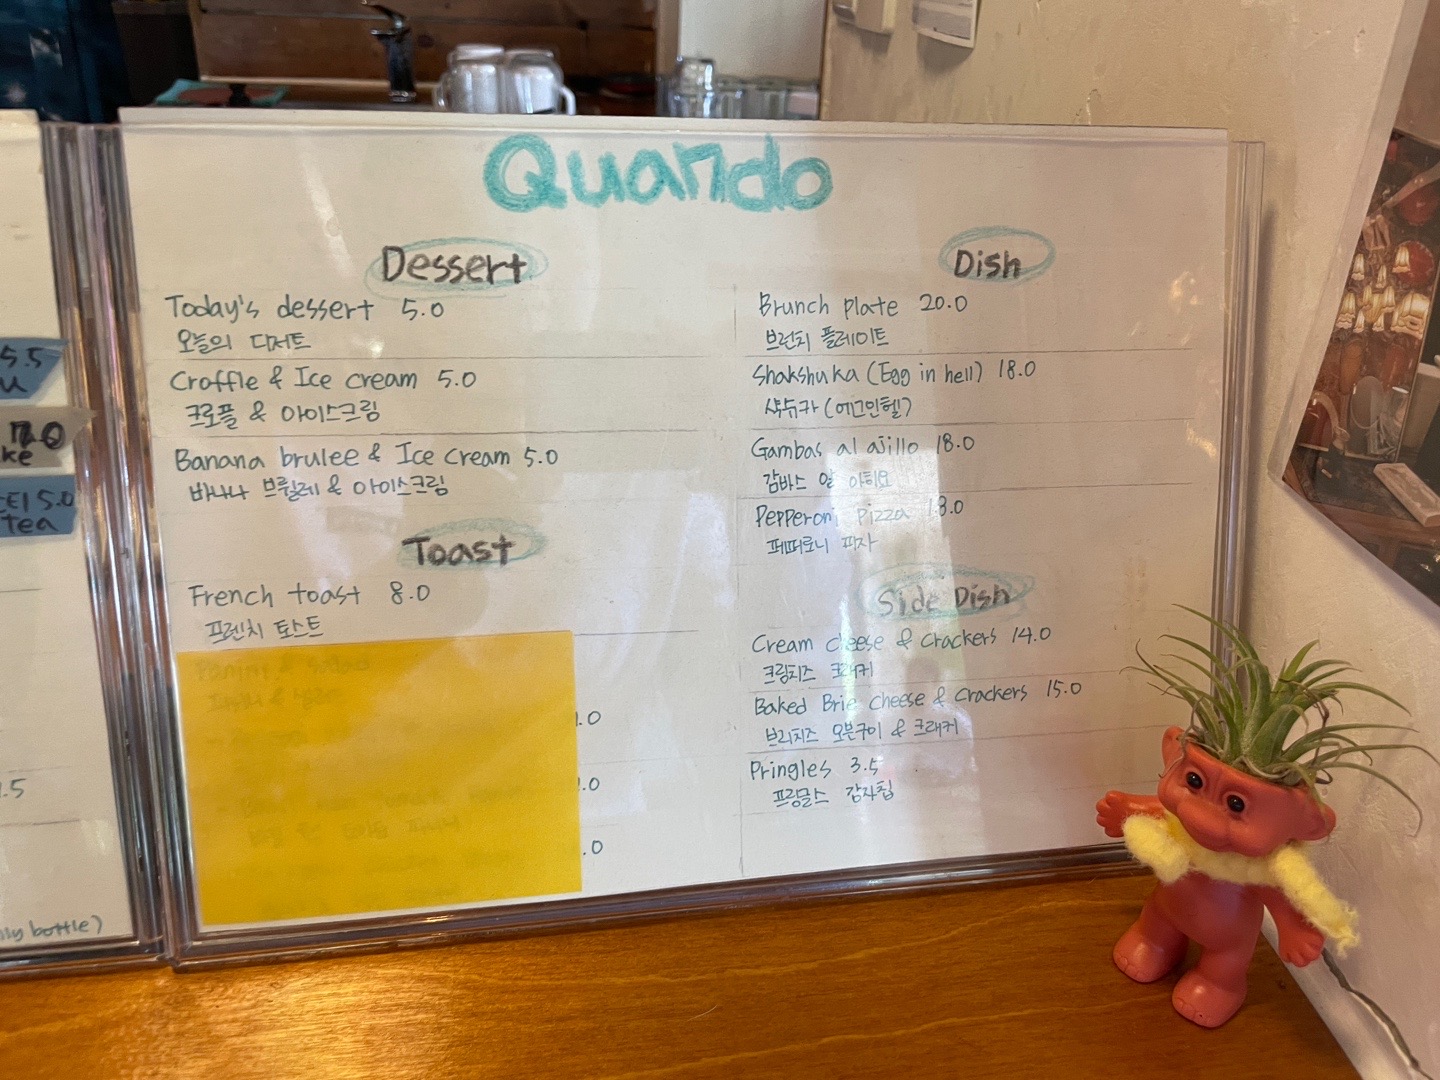 Quando
Dessert
Today's dessert 5.0
오늘의 디저트
Croffle & Ice cream 5.0
크로플 & 아이스크림
Banana brulee & Ice cream 5.0
바나나 브륄레 & 아이스크림
Toast
French toast 8.0
프렌치 토스트
.0
.0
.0
Dish
Brunch plate 20.0
브런치 플레이트
Shakshuka (Egg in hell) 18.0
샥슈카 (에그인헬)
Gambas al ajillo 18.0
감바스 알 아히요
Pepperoni pizza 18.0
페퍼로니 피자
Side Dish
Cream cheese & crackers 14.0
크림치즈 크래커
Baked Brie cheese & crackers 15.0
브리치즈 오븐구이 & 크래커
Pringles 3.5
프링글스 감자칩
5.5
7.0
ke
티 5.0
tea
.5
bottle)